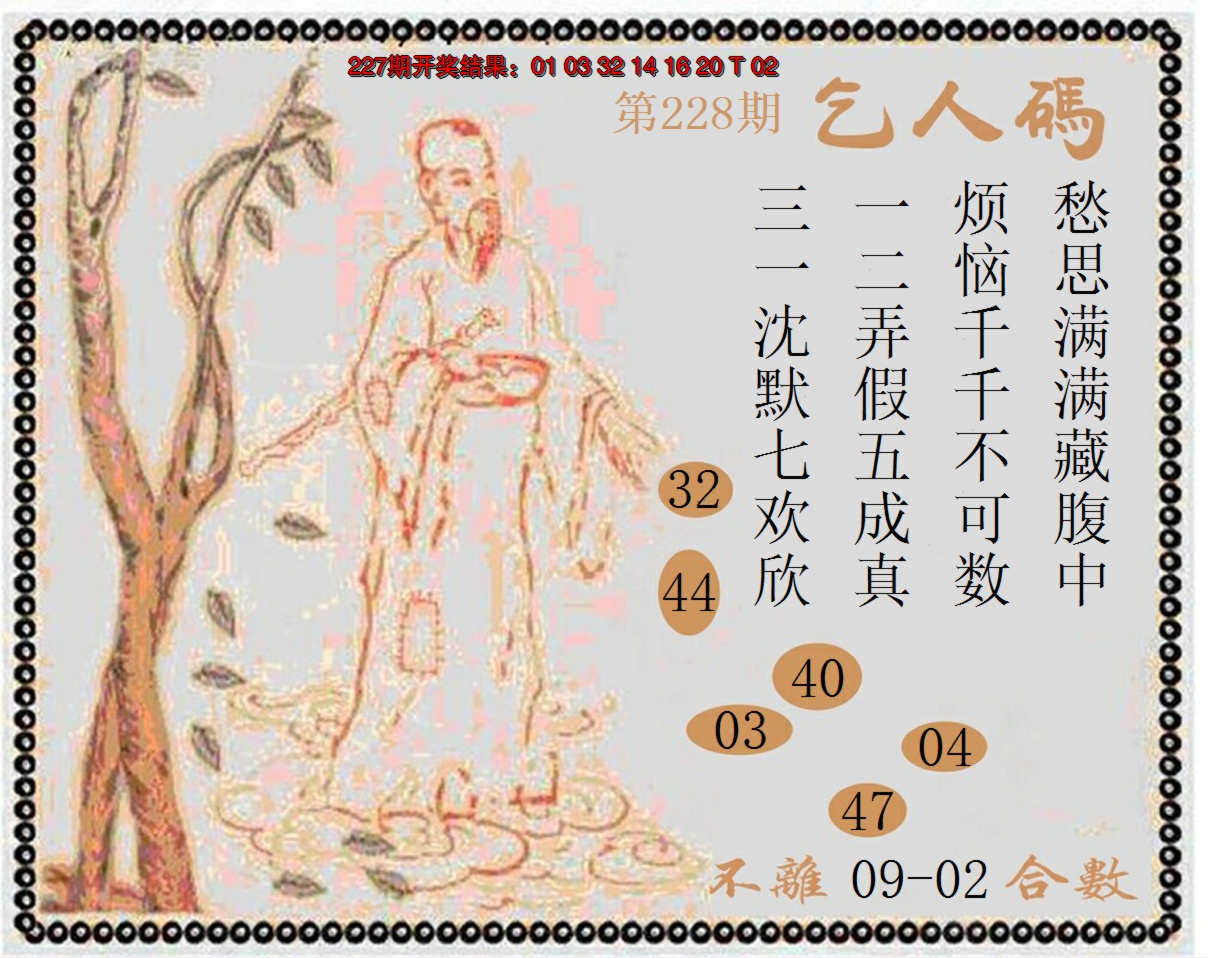 227期开奖结果：01 03 32 14 16 20 T 02
第228期 乞人碼
愁思满满藏腹中
烦恼千千不可数
一二弄假五成真
三一沈默七欢欣
32
44
40
03
04
47
不離 09-02 合數